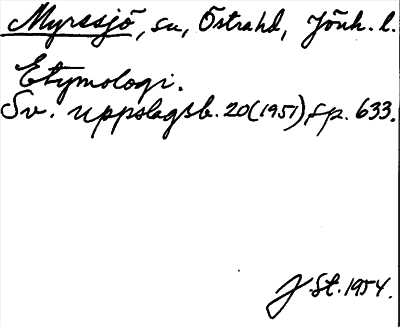 Myressjö, sn, Östra hd, Jönk. l.
Etymologi.
Sv. uppslagsb. 20 (1951), sp. 633.
J. St. 1954.